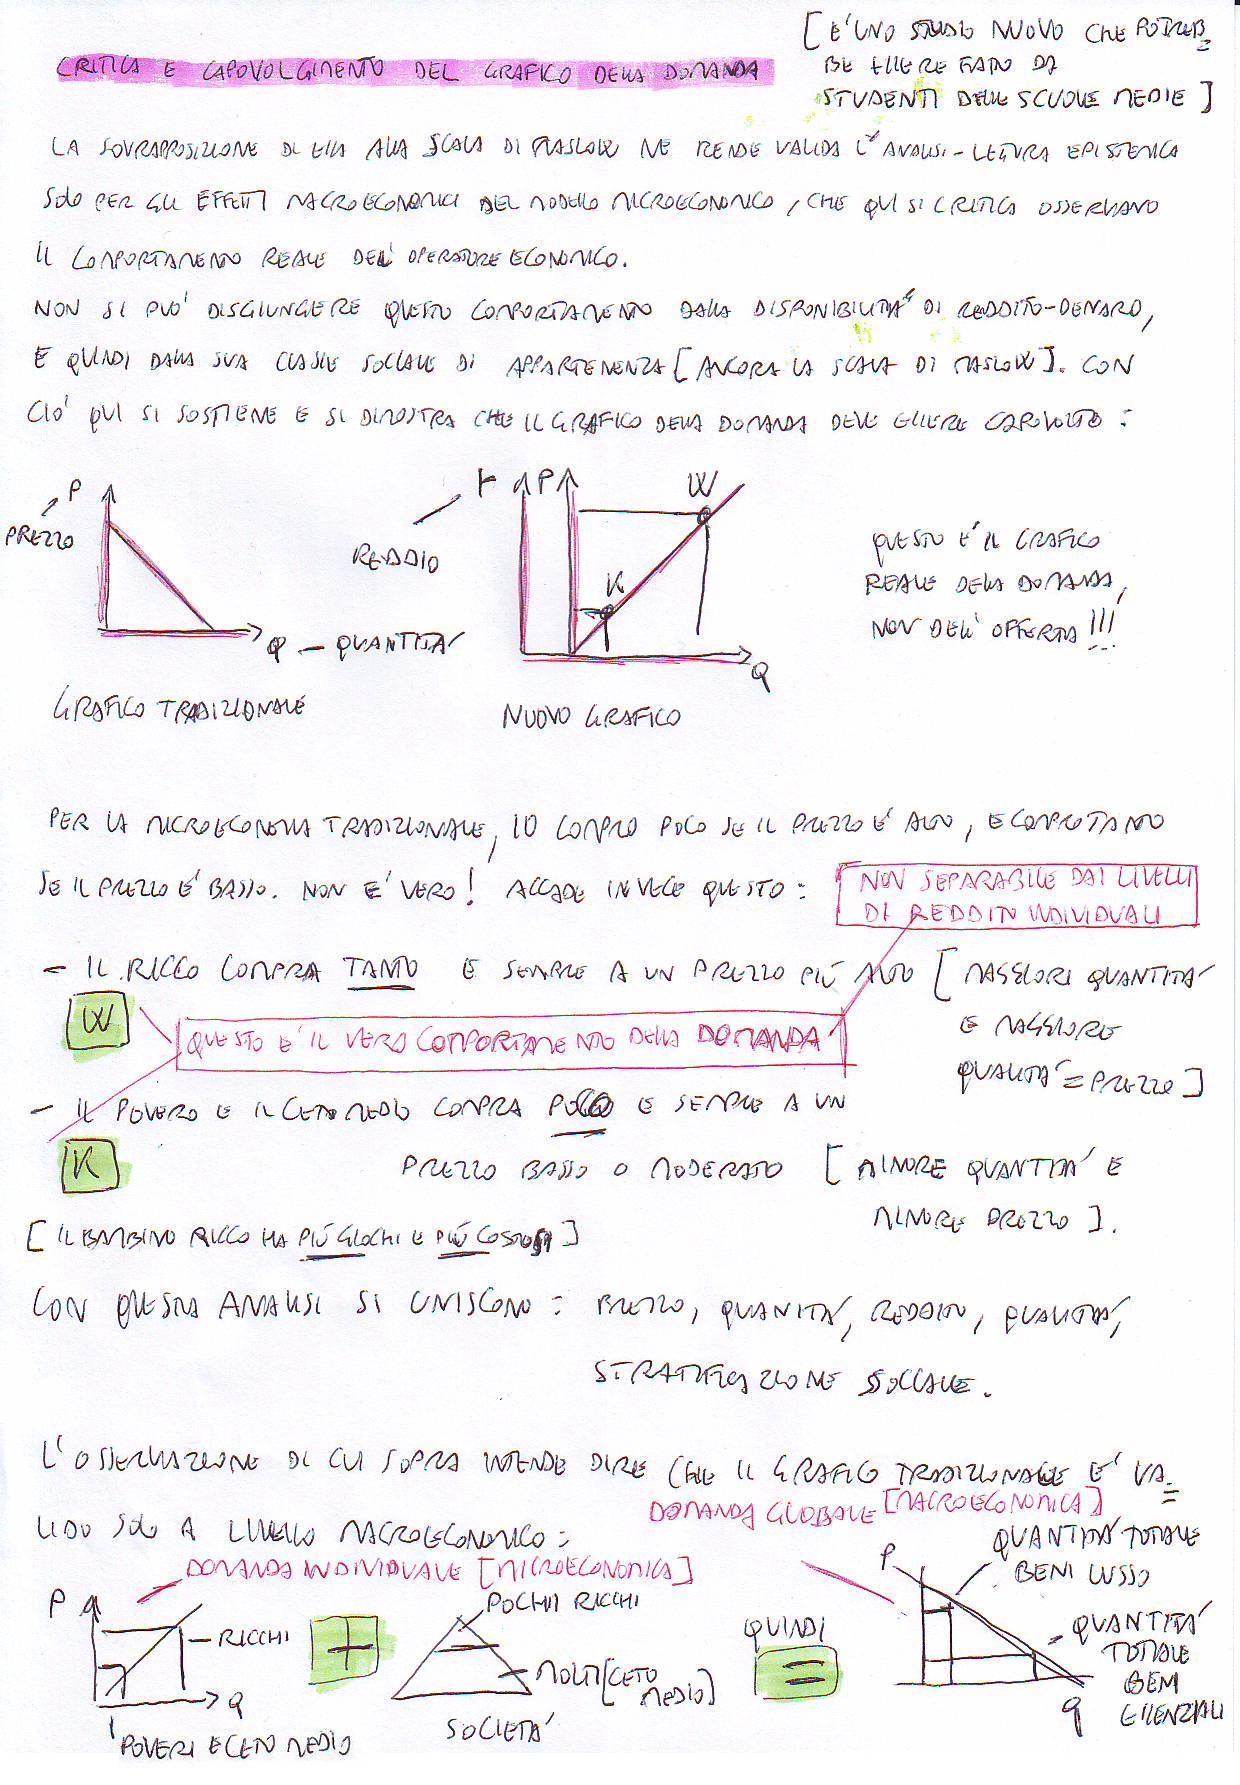 [ E' UNO STUDIO NUOVO CHE POTREB=
BE ESSERE FATTO DA
STUDENTI DELLE SCUOLE MEDIE ]
CRITICA E CAPOVOLGIMENTO DEL GRAFICO DELLA DOMANDA
LA SOVRAPPOSIZIONE DI ESSA ALLA SCALA DI MASLOW NE RENDE VALIDA L'ANALISI-LETTURA EPISTEMICA
SOLO PER GLI EFFETTI MACROECONOMICI DEL MODELLO MICROECONOMICO, CHE QUI SI CRITICA OSSERVANDO
IL COMPORTAMENTO REALE DELL'OPERATORE ECONOMICO.
NON SI PUO' DISGIUNGERE QUESTO COMPORTAMENTO DALLA DISPONIBILITA' DI REDDITO-DENARO,
E QUINDI DALLA SUA CLASSE SOCIALE DI APPARTENENZA [ANCORA LA SCALA DI MASLOW]. CON
CIO' QUI SI SOSTIENE E SI DIMOSTRA CHE IL GRAFICO DELLA DOMANDA DEVE ESSERE CAPOVOLTO:
P
PREZZO
Q - QUANTITA'
GRAFICO TRADIZIONALE
r P W
REDDITO
K
Q
NUOVO GRAFICO
QUESTO E' IL GRAFICO
REALE DELLA DOMANDA,
NON DELL'OFFERTA!!!
PER LA MICROECONOMIA TRADIZIONALE, IO COMPRO POCO SE IL PREZZO E' ALTO, E COMPRO TANTO
SE IL PREZZO E' BASSO. NON E' VERO! ACCADE INVECE QUESTO:
NON SEPARABILE DAI LIVELLI
DI REDDITO INDIVIDUALI
- IL RICCO COMPRA TANTO E SEMPRE A UN PREZZO PIÙ ALTO [MAGGIORI QUANTITA'
E MAGGIORE
QUALITA'=PREZZO]
W
QUESTO E' IL VERO COMPORTAMENTO DELLA DOMANDA
- IL POVERO E IL CETO MEDIO COMPRA POCO E SEMPRE A UN
K
PREZZO BASSO O MODERATO [MINORE QUANTITA' E
MINORE PREZZO].
[IL BAMBINO RICCO HA PIÙ GIOCHI E PIÙ COSTOSI]
CON QUESTA ANALISI SI UNISCONO: PREZZO, QUANTITA', REDDITO, QUALITA',
STRATIFICAZIONE SOCIALE.
L'OSSERVAZIONE DI CUI SOPRA INTENDE DIRE CHE IL GRAFICO TRADIZIONALE E' VA=
LIDO SOLO A LIVELLO MACROECONOMICO:
DOMANDA GLOBALE [MACROECONOMICA]
DOMANDA INDIVIDUALE [MICROECONOMICA]
P
- RICCHI
Q
POVERI E CETO MEDIO
+
POCHI RICCHI
MOLTI [CETO
MEDIO]
SOCIETA'
QUINDI
=
P
QUANTITA' TOTALE
BENI LUSSO
QUANTITA'
TOTALE
BENI
ESSENZIALI
q